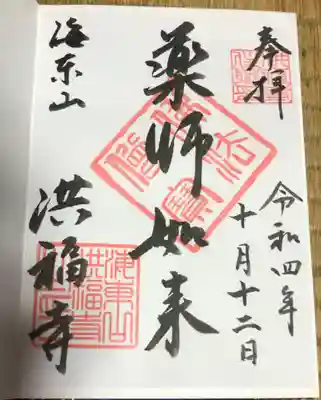 奉拝
令和四年
十月十二日
薬師如来
海东山
洪福寺
佛法僧寶
海東山
洪福寺